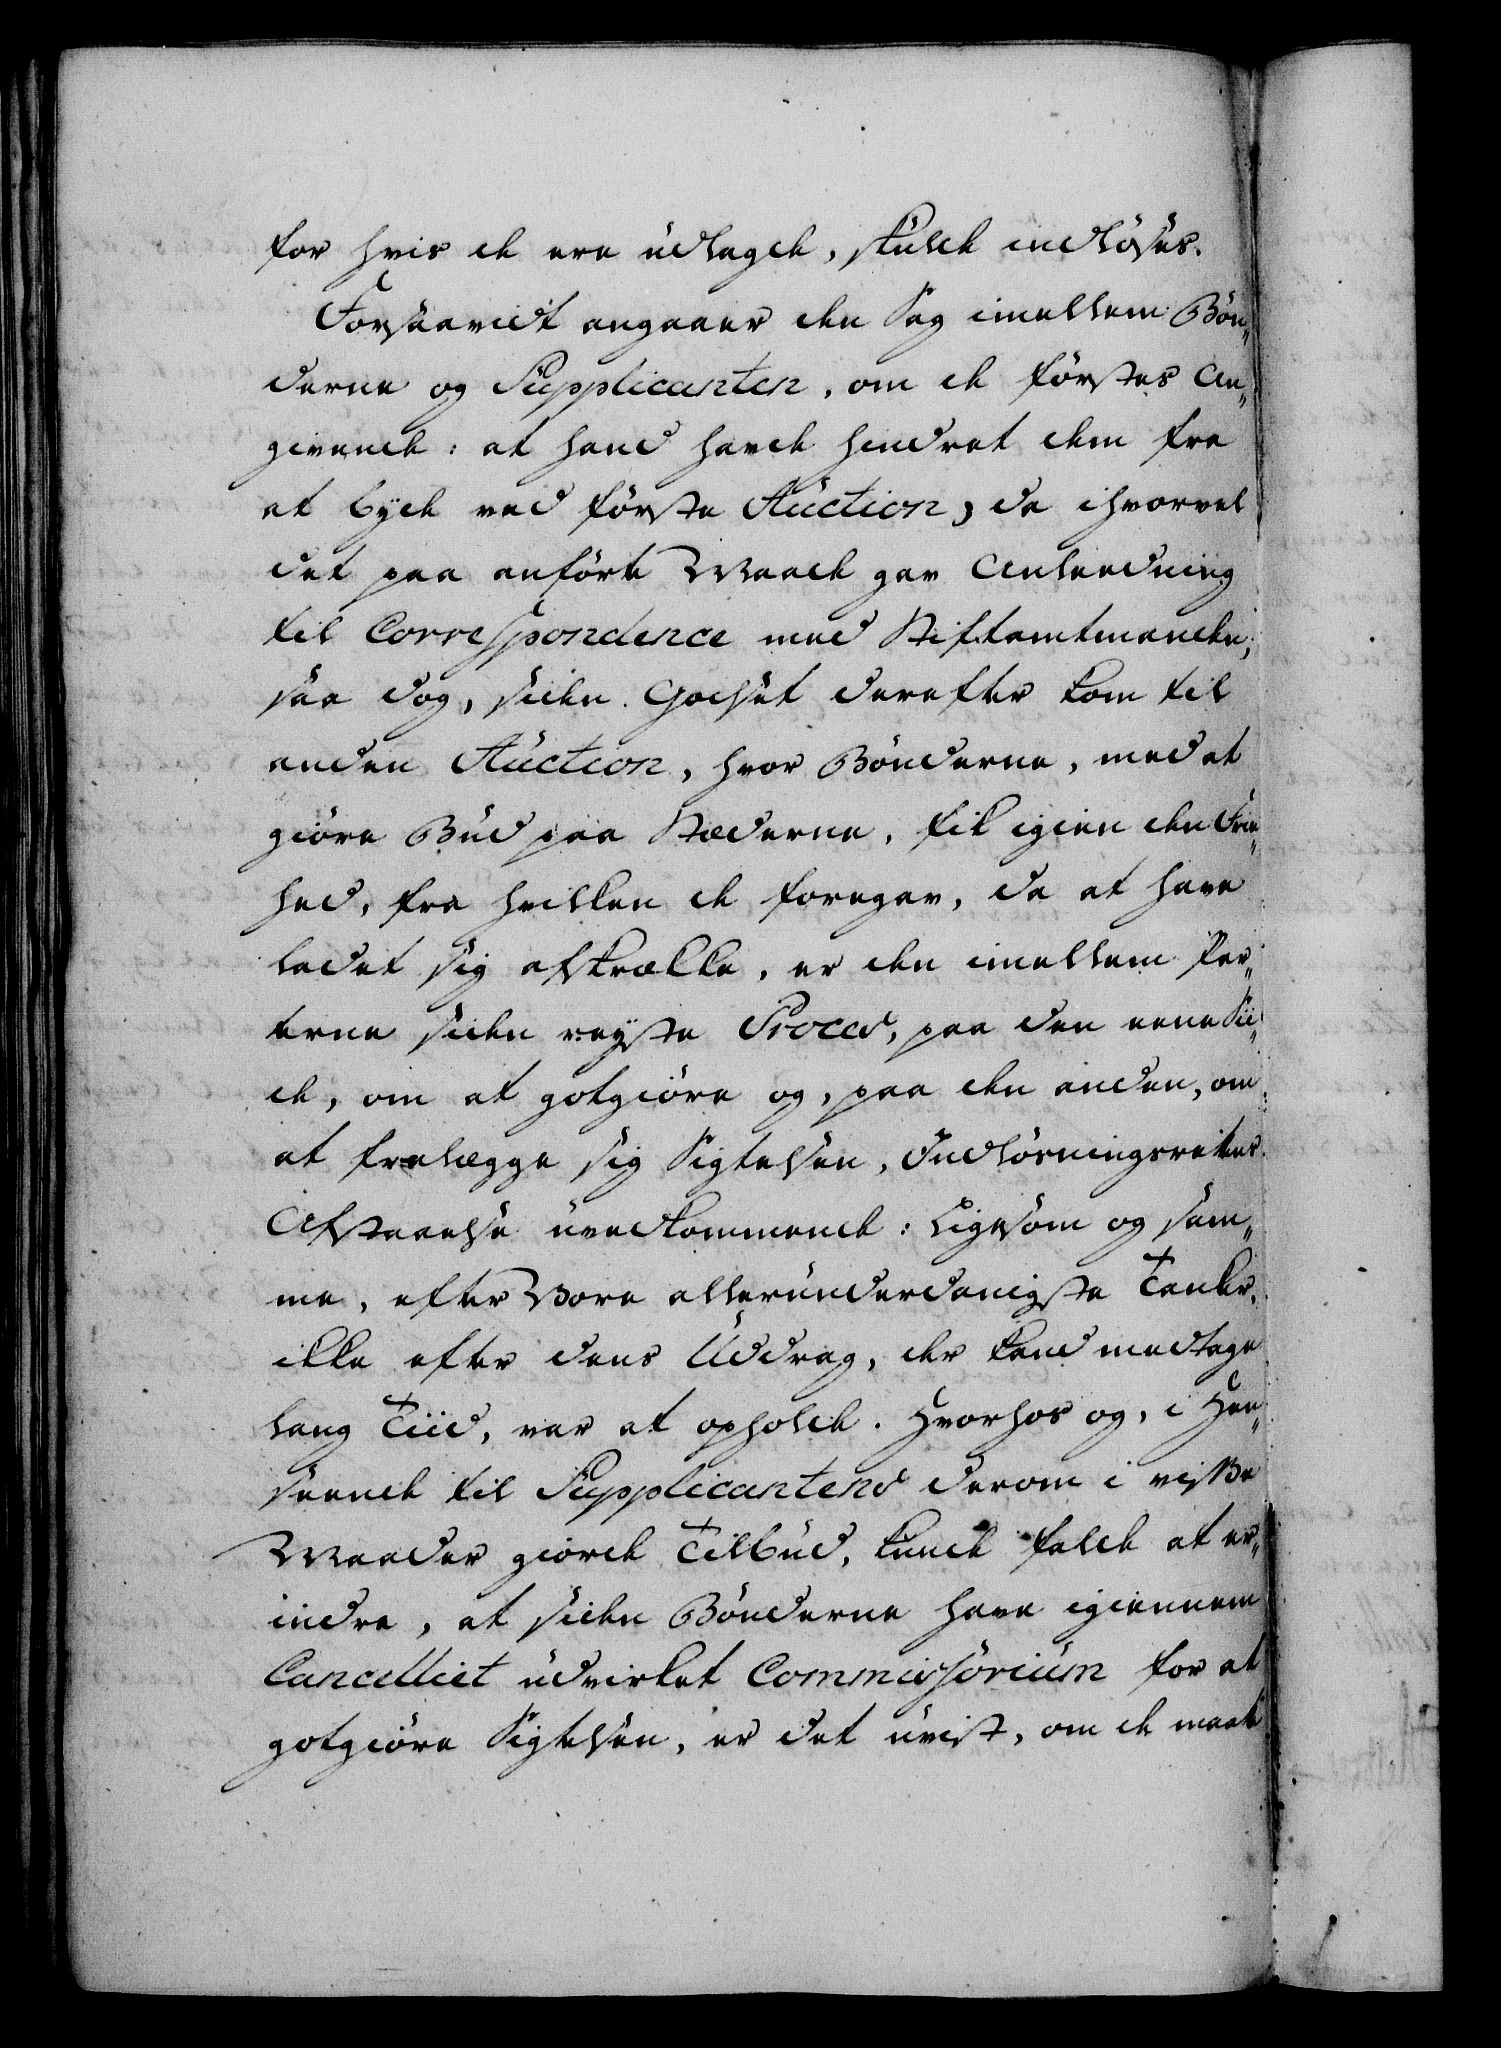 for hvis de ere udlagde, skulde indløses.
Forsaavidt angaaer den Sag imellem Bøn„
derne og Supplicanten, om de førstes An„
givende: at hand havde hindret dem fra
at byde ved første Auction, da ihvorvel
det paa anførte Maade gav Anleedning
til Correspondence med Stiftamtmanden,
saa dog, siden Godset derefter kom til
anden Auction, hvor Bønderne, med at
giøre Bud paa Stæderne, fik igien den Frie„
hed, fra hvilken de foregav, da at have
ladet sig afskrække, er den imellem Par„
terne siden reyste Proces, paa den eene Sii„
de, om at gotgiøre og, paa den anden, om
at fralægge sig Sigtelsen, Indløsningsrettes
Afstaaelse uvedkommende: Ligesom og sam„
me, efter Vore allerunderdanigste Tanker,
ikke efter dens Uddrag, der kand medtage
lang Tiid, var at opholde. Hvorhos og, i Hen„
seende til Supplicantens derom i visse
Maader giorde Tilbud, kunde falde at er„
indre, at siden Bønderne have igiennem
Cancelliet udvirket Commissorium for at
gotgiøre Sigtelsen, er det uvist, om de maatte